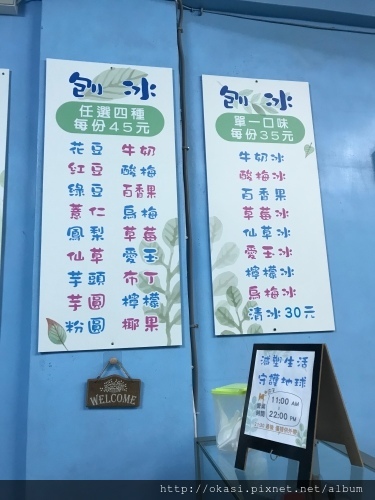 刨冰
任選四種
每份45元
花豆 牛奶
紅豆 酸梅
綠豆 百香果
薏仁 烏梅
鳳梨 草莓
仙草 愛玉
芋頭 布丁
芋圓 檸檬
粉圓 椰果
WELCOME
刨冰
單一口味
每份35元
牛奶冰
酸梅冰
百香果
草莓冰
仙草冰
愛玉冰
檸檬冰
烏梅冰
清冰30元
減塑生活
守護地球
營業時間
11:00 AM
22:00 PM
http://okasi.pixnet.net/album